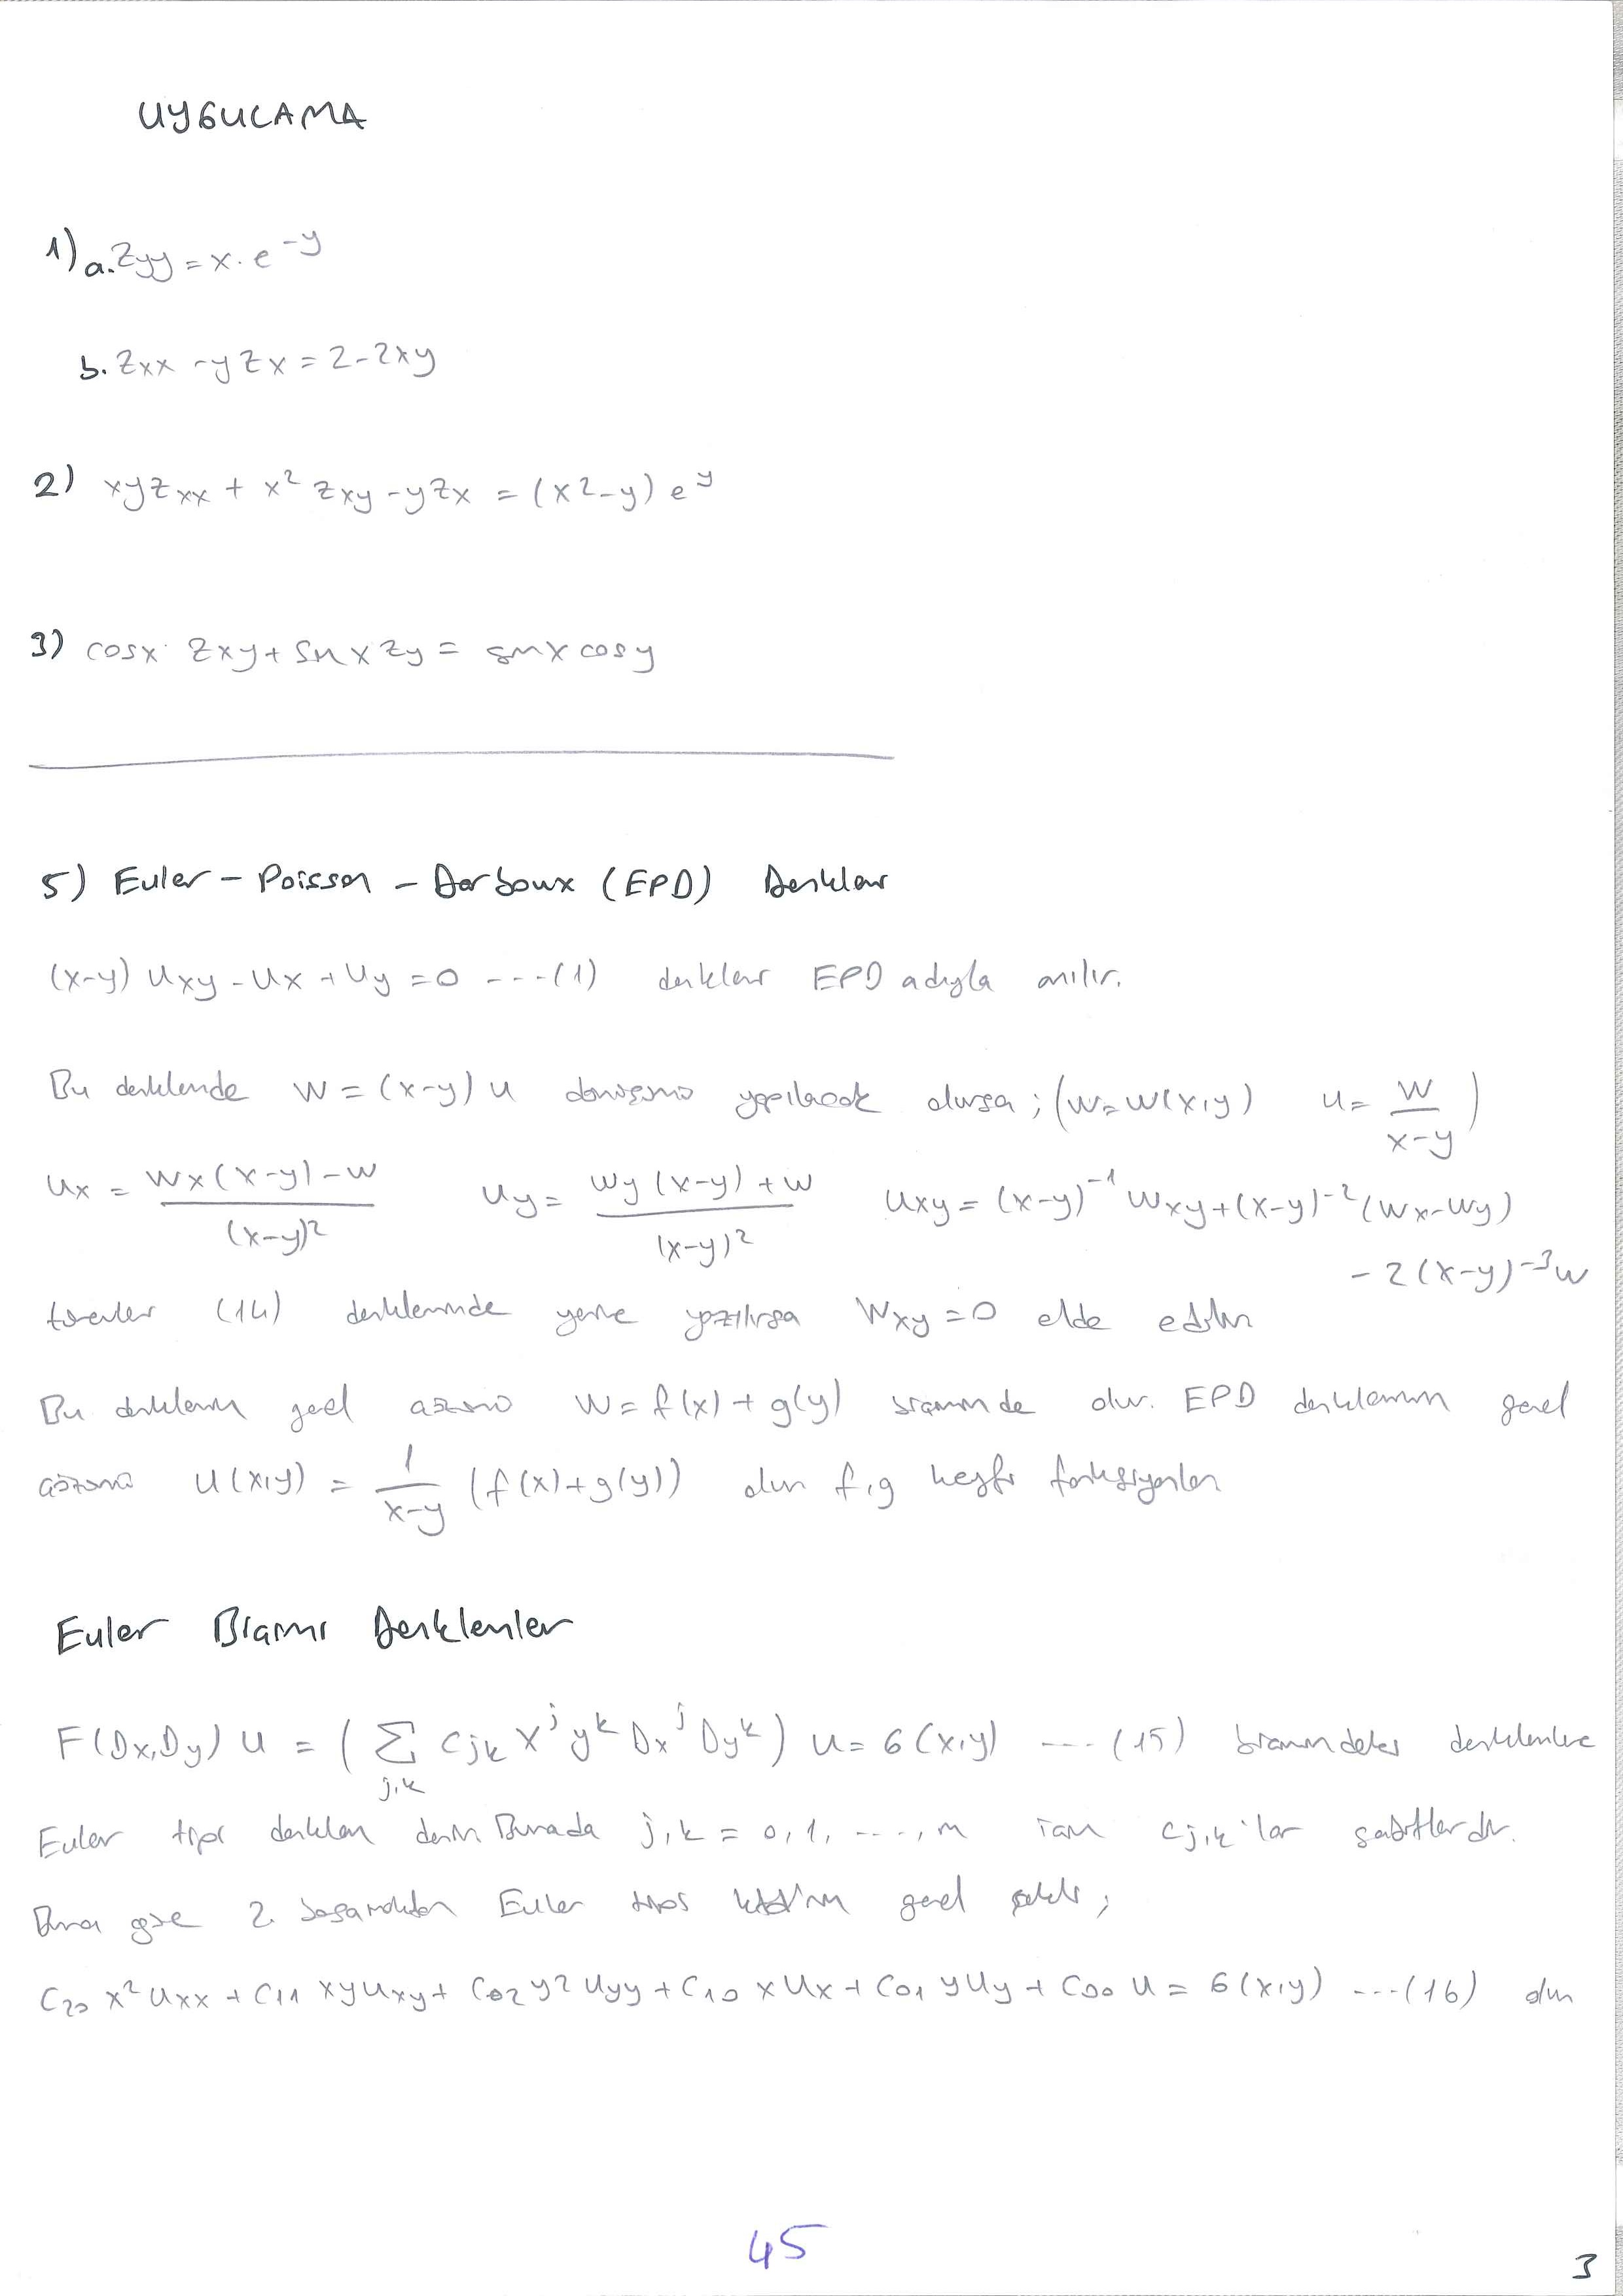 UYGULAMA
1) a. Zyy = x. e^-y
b. Zxx - yZx = 2-2xy
2) xyZxx + x² Zxy - yZx = (x²-y) e^y
3) cosx. Zxy + sinx Zy = sinx cosy
5) Euler - Poisson - Darboux (EPD) Denklemi
(x-y) Uxy - Ux + Uy = 0 ---(1) denklemi EPD adıyla anılır.
Bu denklemde w = (x-y) u dönüşümü yapılacak olursa ; (w = w(x,y) u = w/(x-y))
Ux = (wx(x-y)-w)/(x-y)² Uy = (wy(x-y)+w)/(x-y)² Uxy = (x-y)^-1 Wxy + (x-y)^-2 (Wx-Wy)
- 2(x-y)^-3 w
türevler (14) denkleminde yerine yazılırsa Wxy = 0 elde edilir
Bu denklemin genel çözümü w = f(x) + g(y) biçiminde olur. EPD denkleminin genel
çözümü u(x,y) = 1/(x-y) (f(x)+g(y)) olur f,g keyfi fonksiyonlar
Euler Biçimi Denklemler
F(Dx,Dy) u = ( Σ_{j,k} cjk x^j y^k Dx^j Dy^k ) u = G(x,y) ---(15) biçimindeki denklemlere
Euler tipi denklem denir Burada j,k = 0,1, ----, n için cj,k'lar sabitlerdir.
Buna göre 2. basamaktan Euler tipi genel şekli ;
C20 x² Uxx + C11 xyUxy + C02 y² Uyy + C10 x Ux + C01 yUy + C00 U = G(x,y) ---(16) olur
45
3